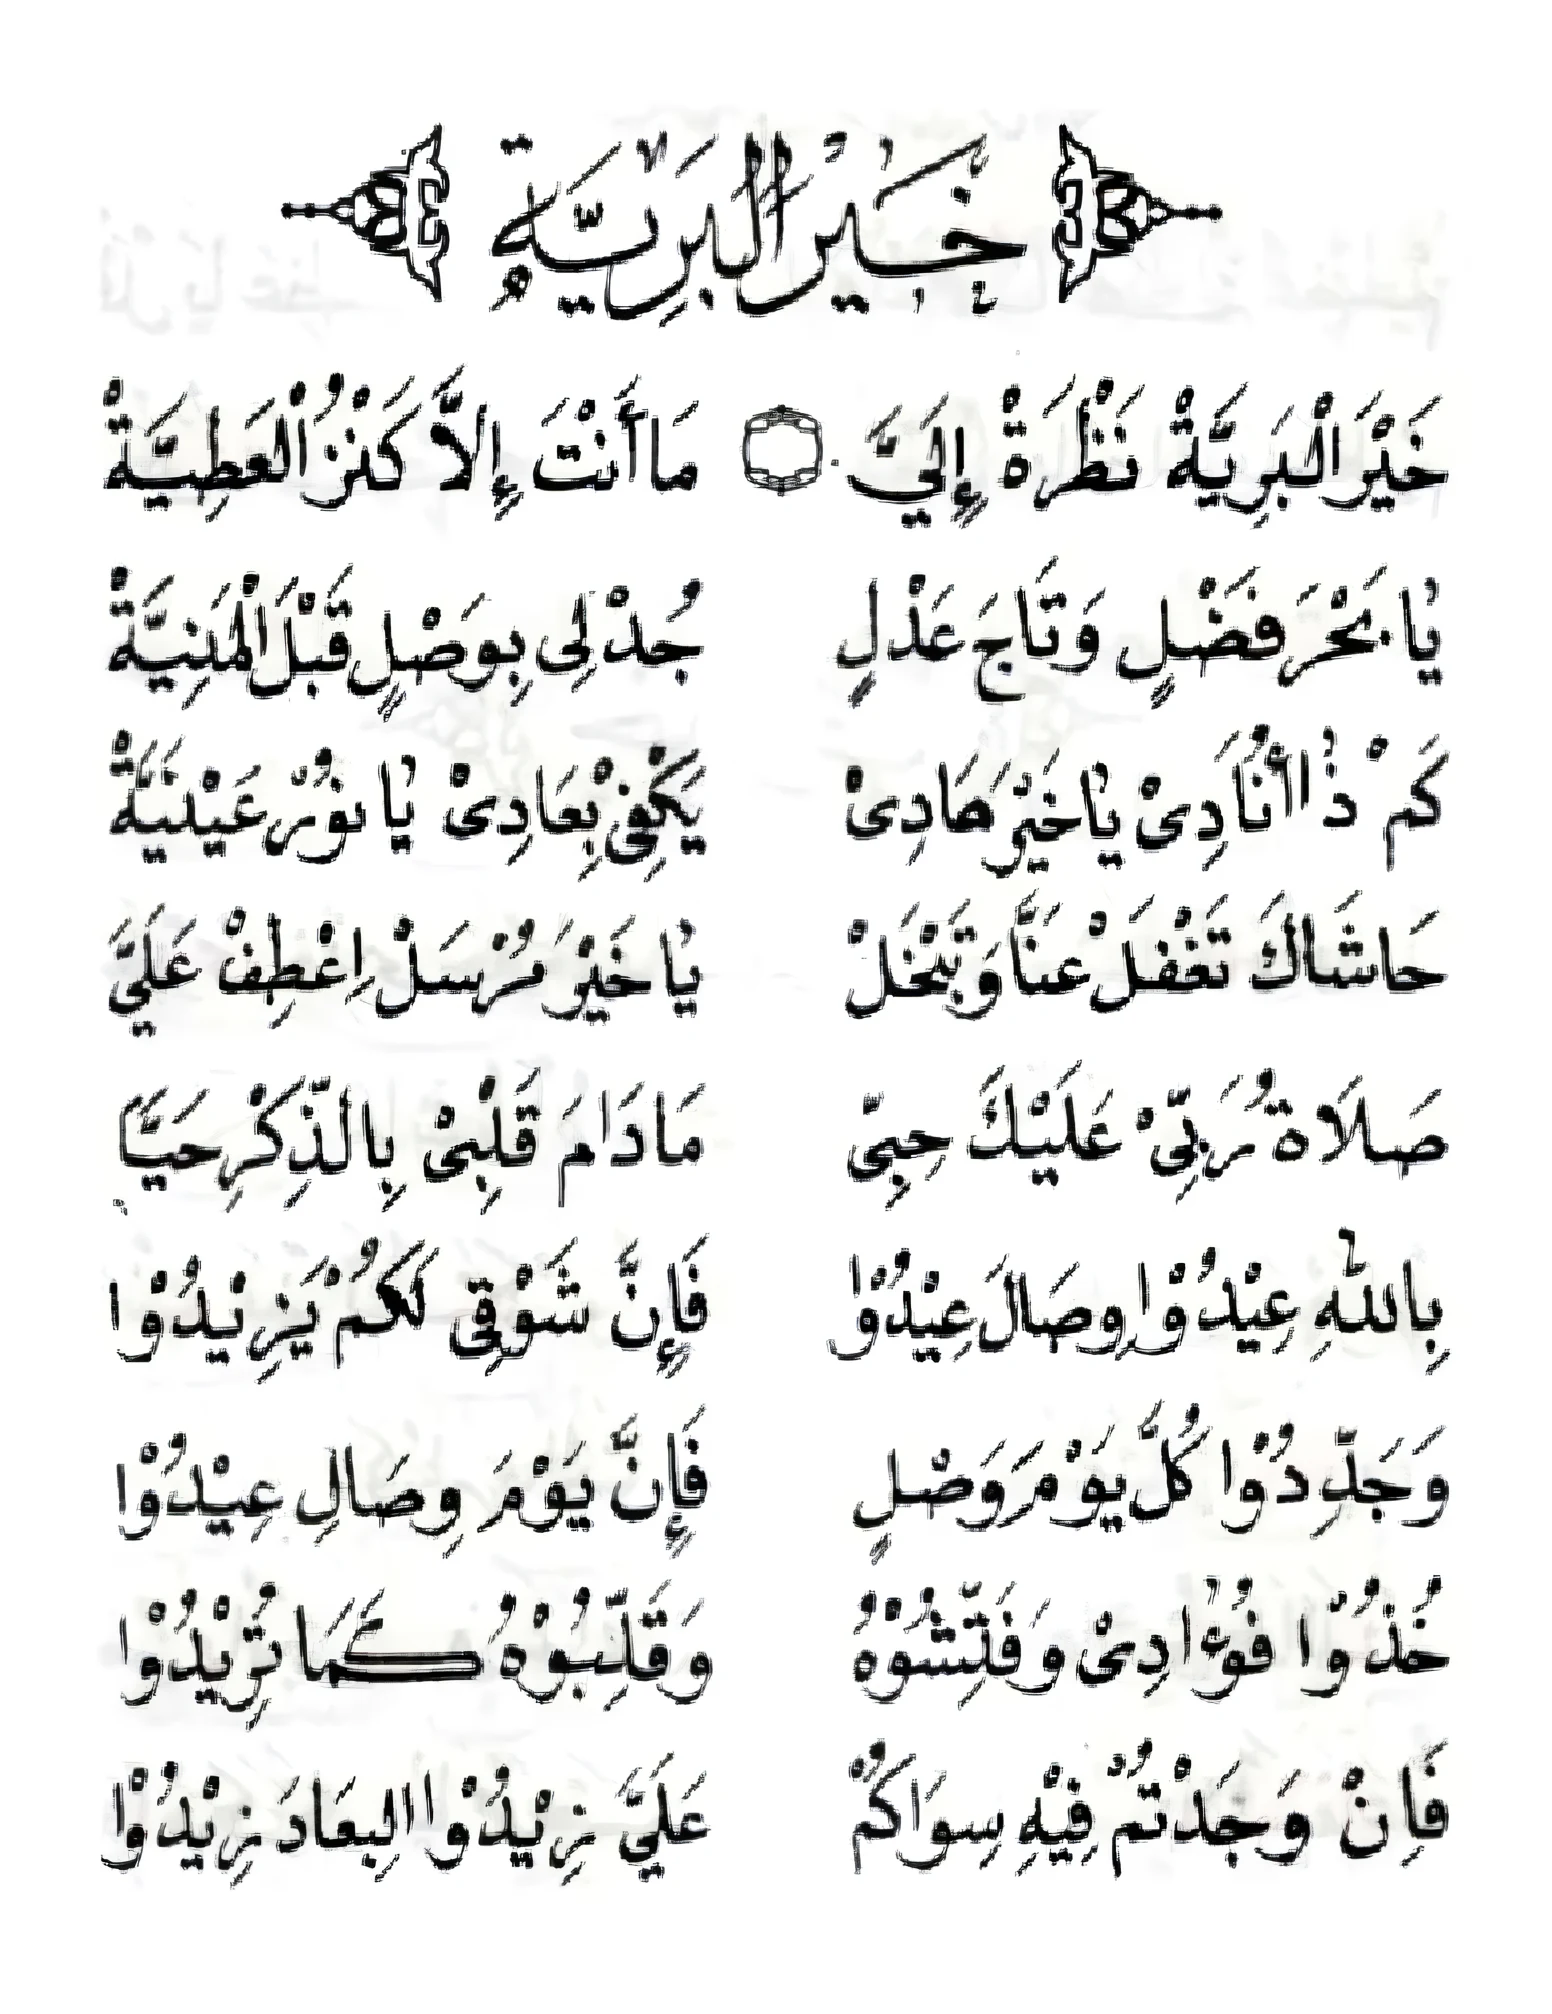 خَيْرَ الْبَرِيَّةِ
خَيْرَ الْبَرِيَّةْ نَظْرَةْ إِلَيَّ مَا أَنْتَ إِلاَّ كَنْزُ الْعَطِيَّةْ
يَا بَحْرَ فَضْلٍ وَتَاجَ عَدْلٍ جُدْ لِى بِوَصْلٍ قَبْلَ الْمَنِيَّةْ
كَمْ ذَا أُنَادِىْ يَا خَيْرَ هَادِىْ يَكْفِىْ بِعَادِىْ يَا نُوْرَ عَيْنَيَّةْ
حَاشَاكَ تَغْفَلْ عَنَّا وَتَبْخَلْ يَا خَيْرَ مُرْسَلْ اِعْطِفْ عَلَيَّ
صَلَاةُ رَبِّىْ عَلَيْكَ حِبِّىْ مَادَامَ قَلْبِىْ بِالذِّكْرِ حَيًّا
بِاللّٰهِ عِيْدُوْا وِصَالَ عِيْدُوْا فَإِنَّ شَوْقِى لَكُمْ يَزِيْدُوْا
وَجَدِّدُوْا كُلَّ يَوْمَ وَصْلٍ فَإِنَّ يَوْمَ وِصَالِ عِيْدُوْا
خُذُوْا فُوءَادِىْ وَفَتِّشُوْهُ وَقَلِّبُوْهُ كَمَا تُرِيْدُوْا
فَاِنْ وَجَدْتُمْ فِيْهِ سِوَاكُمْ عَلَيَّ زِيْدُوْا الْبِعَادَ زِيْدُوْا